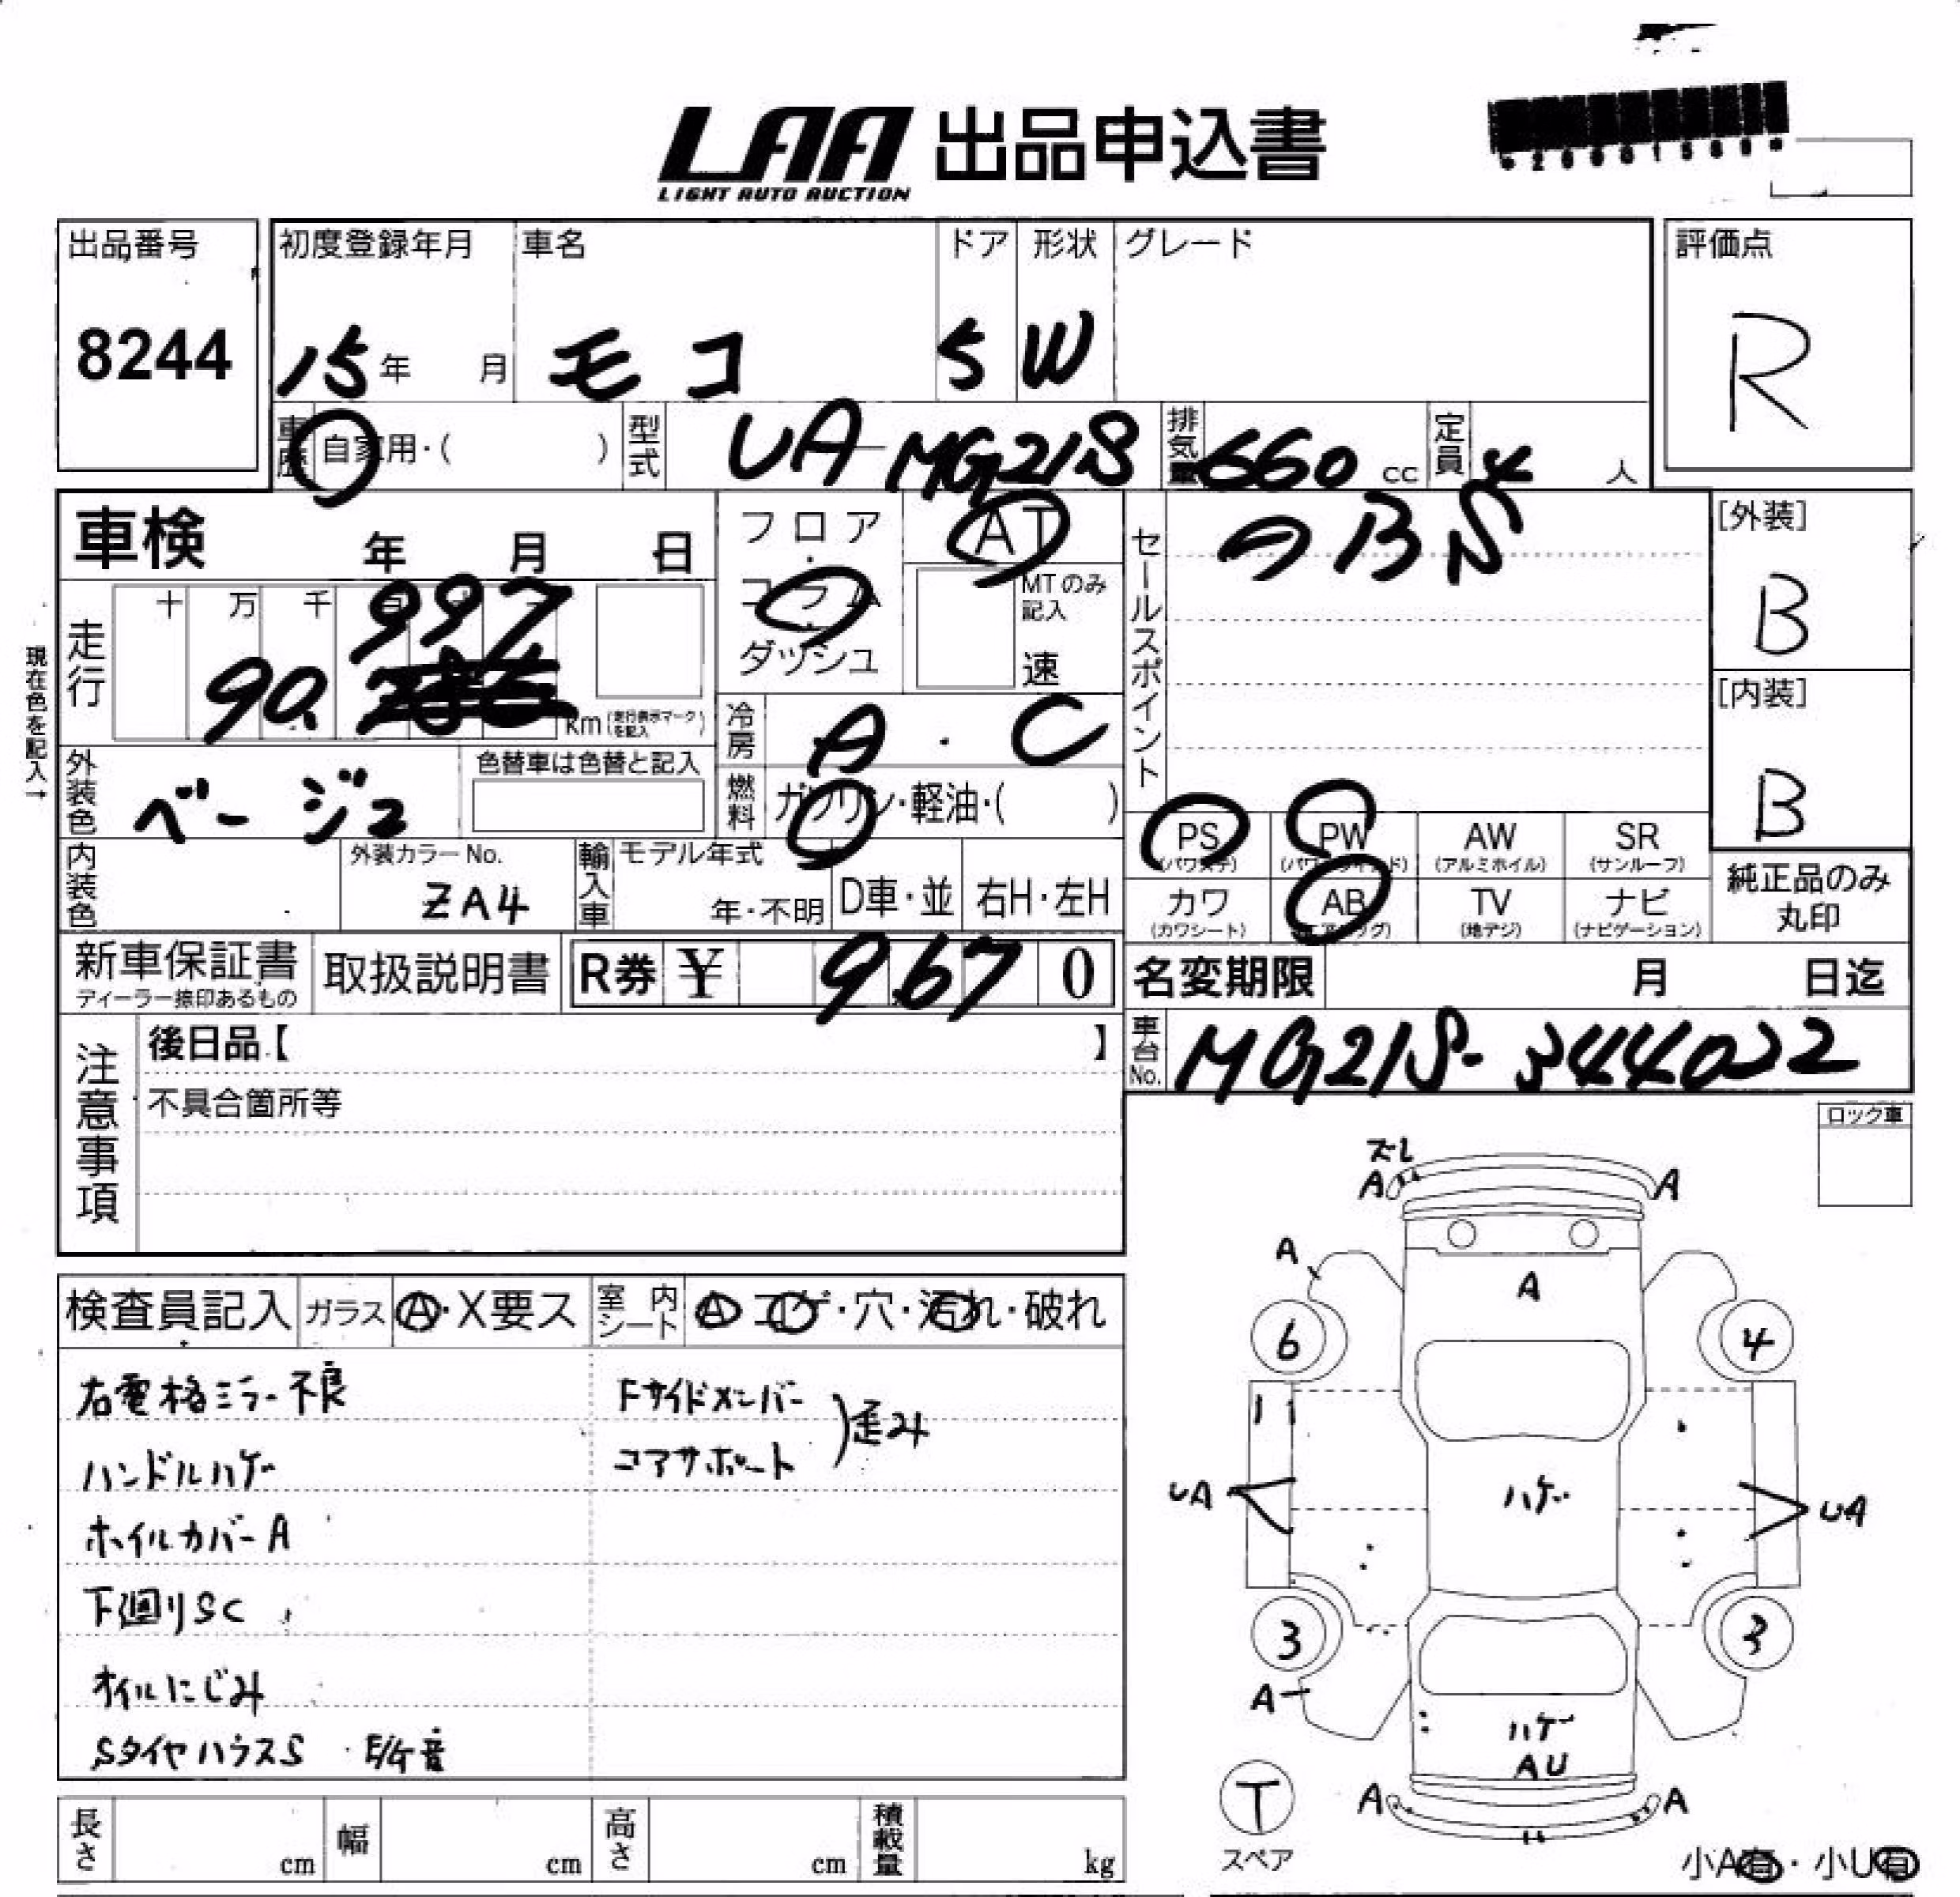 LAA 出品申込書
LIGHT AUTO AUCTION
出品番号
8244
初度登録年月
15年 月
車名
モコ
ドア
5
形状
W
グレード
評価点
R
車歴 自家用・( )
型式 UA-MG21S
排気量 660 cc
定員 4 人
車検 年 月 日
フロア・コラム・ダッシュ
AT
MTのみ記入
速
セールスポイント
[外装]
B
走行 十 万 千
90,997 km
現在色を記入→
冷房 A・C
[内装]
B
外装色 ベージュ
色替車は色替と記入
燃料 ガソリン・軽油・( )
PS PW AW SR
(パワステ) (パワーウインド) (アルミホイル) (サンルーフ)
内装色
外装カラーNo.
ZA4
輸入車 モデル年式
年・不明 D車・並 右H・左H
カワ AB TV ナビ
(カワシート) (エアバッグ) (地デジ) (ナビゲーション)
純正品のみ
丸印
新車保証書
ディーラー捺印あるもの
取扱説明書
R券 ¥ 9,670
名変期限 月 日迄
車台No. MG21S-344022
注意事項
後日品【 】
不具合箇所等
ロック車
検査員記入
ガラス A・X要ス
室内シート A コゲ・穴・汚れ・破れ
右電格ミラー不良
ハンドルハゲ
ホイルカバーA
下廻りSC
オイルにじみ
SタイヤハウスS
Fサイドメンバー
コアサポート
)歪み
ズレ
A A
A
A
6 4
UA ハゲ UA
3 3
A
ハゲ
AU
A A
T
スペア
小A有・小U有
長さ cm 幅 cm 高さ cm 積載量 kg